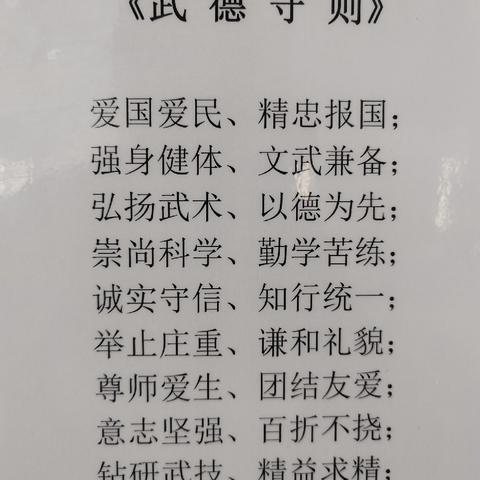 《武德守则》
爱国爱民、精忠报国；
强身健体、文武兼备；
弘扬武术、以德为先；
崇尚科学、勤学苦练；
诚实守信、知行统一；
举止庄重、谦和礼貌；
尊师爱生、团结友爱；
意志坚强、百折不挠；
钻研武技、精益求精；